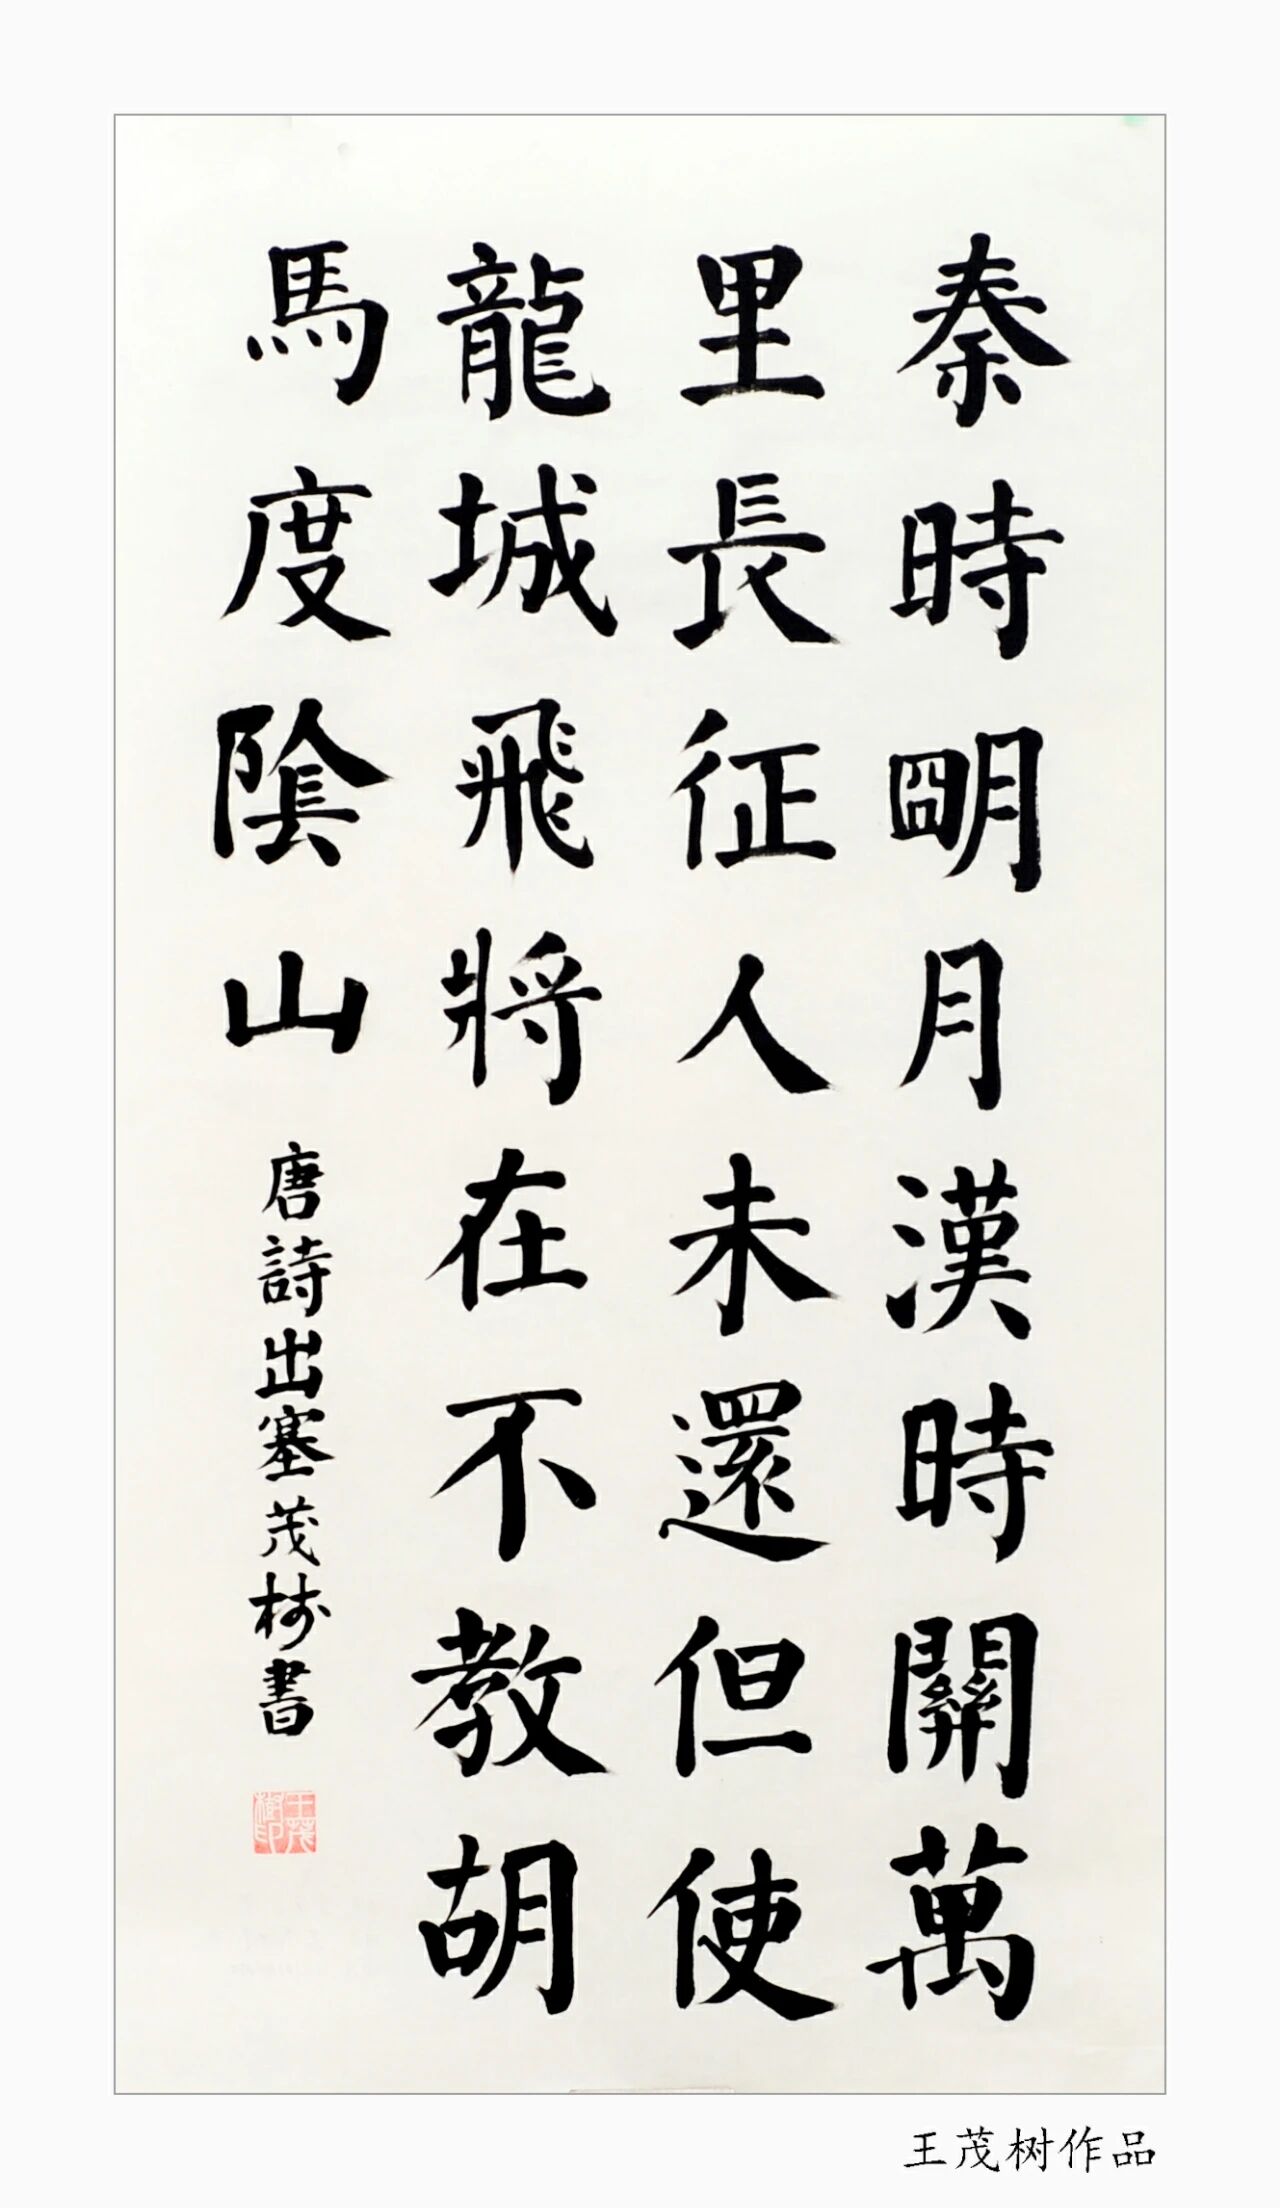 秦時明月漢時關萬
里長征人未還但使
龍城飛將在不教胡
馬度陰山
唐詩出塞茂树書
王茂樹印
王茂树作品